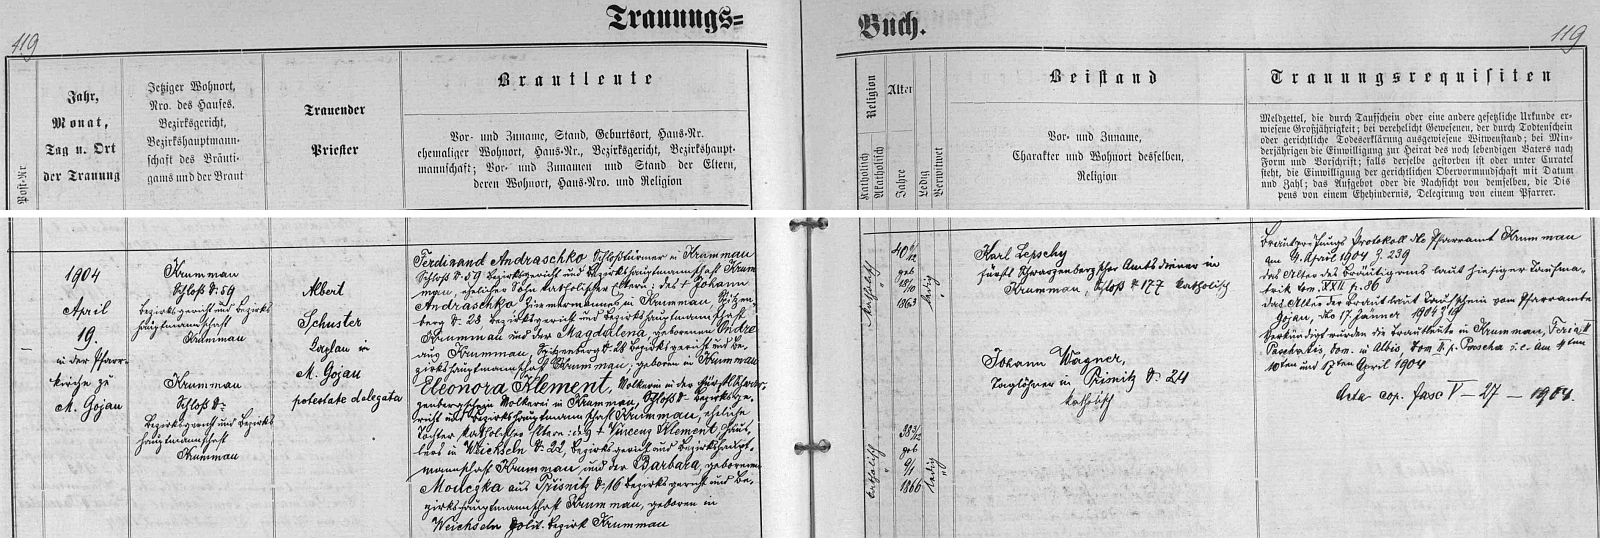 Trauungs=
Buch.
119
119
Post-Nr
Jahr,
Monat,
Tag u. Ort
der Trauung
Jetziger Wohnort,
Nro. des Hauses.
Bezirksgericht,
Bezirkshauptmann-
schaft des Bräuti-
gams und der Braut
Trauender
Priester
Brautleute
Vor- und Zuname, Stand, Geburtsort, Haus-Nr.
ehemaliger Wohnort, Haus-Nr., Bezirksgericht, Bezirkshaupt-
mannschaft; Vor- und Zunamen und Stand der Eltern,
deren Wohnort, Haus-Nro. und Religion
Religion
Katholisch
Akatholisch
Alter
Jahre
Ledig
Verwitwet
Beistand
Vor- und Zuname,
Charakter und Wohnort desselben,
Religion
Trauungsrequisiten
Meldzettel, die durch Taufschein oder eine andere gesetzliche Urkunde er-
wiesene Großjährigkeit; bei verehelicht Gewesenen, der durch Todtenschein
oder gerichtliche Todeserklärung ausgewiesene Witwenstand; bei Min-
derjährigen die Einwilligung zur Heirat des noch lebendigen Vaters nach
Form und Vorschrift; falls derselbe gestorben ist oder unter Curatel
steht, die Einwilligung der gerichtlichen Obervormundschaft mit Datum
und Zahl; das Aufgebot oder die Nachsicht von demselben, die Dis
pens von einem Ehehindernis, Delegirung von einem Pfarrer.
1904
April
19.
in der Pfarr-
kirche zu
M. Gojau
Krummau
Schloß N: 59
Bezirksgericht und Bezirks
hauptmannschaft
Krummau
Krummau
Schloß N:
Bezirksgericht und Bezirks
hauptmannschaft
Krummau
Albert
Schuster
Kaplan in
M. Gojau
potestate delegata
Ferdinand Andraschko Schloßtürmer in Krummau
Schloß N: 59 Bezirksgericht und Bezirkshauptmannschaft Krum
mau, ehelicher Sohn katholischer Eltern: des † Johann
Andraschko Zimmermannes in Krummau, Spitzen-
berg N: 28 Bezirksgericht und Bezirkshauptmannschaft
Krummau und der Magdalena, geborenen Ondre
aus Krummau, Spitzenberg N: 28 Bezirksgericht und Be-
zirkshauptmannschaft Krummau, geboren in Krummau
Eleonora Klement, Molkerei in der fürstl. Schwar-
zenbergschen Molkerei in Krummau, Schloß N: Bezirksge-
richt und Bezirkshauptmannschaft Krummau, eheliche
Tochter katholischer Eltern: des † Vincenz Klement, Häus-
lers in Weichseln N: 22, Bezirksgericht und Bezirkshaupt-
mannschaft Krummau, und der Barbara, geborenen
Mouczka aus Prisnitz N: 16 Bezirksgericht und Be-
zirkshauptmannschaft Krummau, geboren in
Weichseln polit. Bezirk Krummau
Katholisch
40 6/12
geb
18/10
1863
ledig
Katholisch
38 3/12
geb
9/1
1866
ledig
Karl Lepschy
fürstl. Schwarzenberg'scher Amtsdiener in
Krummau, Schloß N: 177 katholisch
Johann Wagner,
Taglöhner in Prisnitz N: 24
katholisch
Brautprüfungs Protokoll dto Pfarramt Krummau
am 4. April 1904 Z. 239
das Alter des Bräutigams laut hiesiger Taufma-
trik tom. XXII p. 86
das Alter der Braut laut Taufschein vom Pfarramte
Gojau, dto 17. Jänner 1904
Verkündigt wurden die Brautleute in Krummau, Feria II
Paschatis, Dom. in Albis, Dom. II p. Pascha i. e. am 4ten
10ten und 17ten April 1904
Acta cop. fasc V – 27 – 1904.